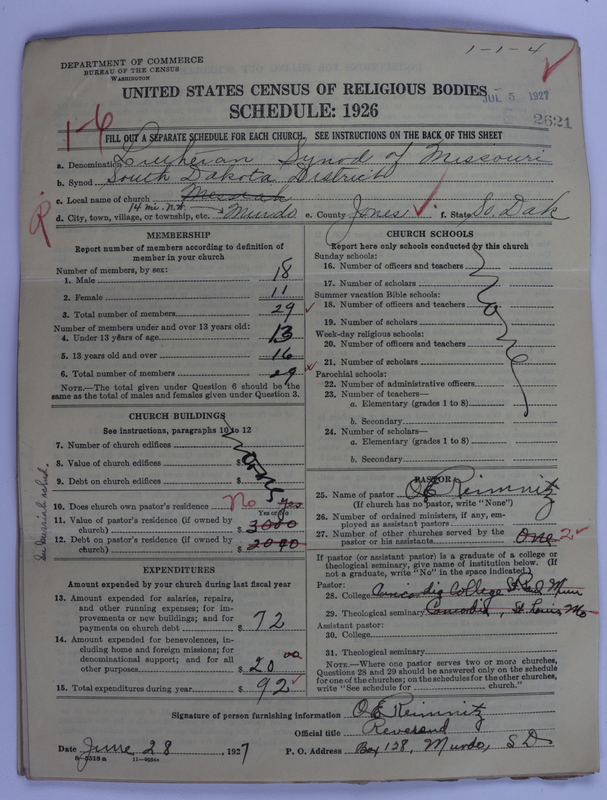 1-1-4
DEPARTMENT OF COMMERCE
BUREAU OF THE CENSUS
WASHINGTON
UNITED STATES CENSUS OF RELIGIOUS BODIES
JUL 5 1927
SCHEDULE: 1926
2621
1-6
FILL OUT A SEPARATE SCHEDULE FOR EACH CHURCH. SEE INSTRUCTIONS ON THE BACK OF THIS SHEET
a. Denomination Lutheran Synod of Missouri
b. Synod South Dakota District
c. Local name of church Messiah
d. City, town, village, or township, etc. 14 mi. N.W. Murdo e. County Jones f. State So. Dak
R
MEMBERSHIP
Report number of members according to definition of member in your church
Number of members, by sex:
1. Male 18
2. Female 11
3. Total number of members 29
Number of members under and over 13 years old:
4. Under 13 years of age 13
5. 13 years old and over 16
6. Total number of members 29
NOTE.—The total given under Question 6 should be the same as the total of males and females given under Question 3.
CHURCH BUILDINGS
See instructions, paragraphs 10 to 12
7. Number of church edifices
8. Value of church edifices $
9. Debt on church edifices $
None
10. Does church own pastor's residence No Yes
Yes or No
11. Value of pastor's residence (if owned by church) $ 3000
12. Debt on pastor's residence (if owned by church) $ 2000
See Messiah sched.
EXPENDITURES
Amount expended by your church during last fiscal year
13. Amount expended for salaries, repairs, and other running expenses; for improvements or new buildings; and for payments on church debt $ 72
14. Amount expended for benevolences, including home and foreign missions; for denominational support; and for all other purposes $ 20 00
15. Total expenditures during year $ 92
CHURCH SCHOOLS
Report here only schools conducted by this church
Sunday schools:
16. Number of officers and teachers
17. Number of scholars
Summer vacation Bible schools:
18. Number of officers and teachers
19. Number of scholars
Week-day religious schools:
20. Number of officers and teachers
21. Number of scholars
Parochial schools:
22. Number of administrative officers
23. Number of teachers—
a. Elementary (grades 1 to 8)
b. Secondary
24. Number of scholars—
a. Elementary (grades 1 to 8)
b. Secondary
None
PASTOR
25. Name of pastor O E Reimnitz
(If church has no pastor, write "None")
26. Number of ordained ministers, if any, employed as assistant pastors
27. Number of other churches served by the pastor or his assistants One 2
If pastor (or assistant pastor) is a graduate of a college or theological seminary, give name of institution below. (If not a graduate, write "No" in the space indicated.)
Pastor:
28. College Concordia College St. Paul Minn
29. Theological seminary Concordia, St. Louis Mo
Assistant pastor:
30. College
31. Theological seminary
NOTE.—Where one pastor serves two or more churches, Questions 28 and 29 should be answered only on the schedule for one of the churches; on the schedules for the other churches, write "See schedule for church."
Signature of person furnishing information O. E. Reimnitz
Official title Reverend
Date June 28, 1927 P. O. Address Box 128, Murdo, S D
8-5318a 11—9054